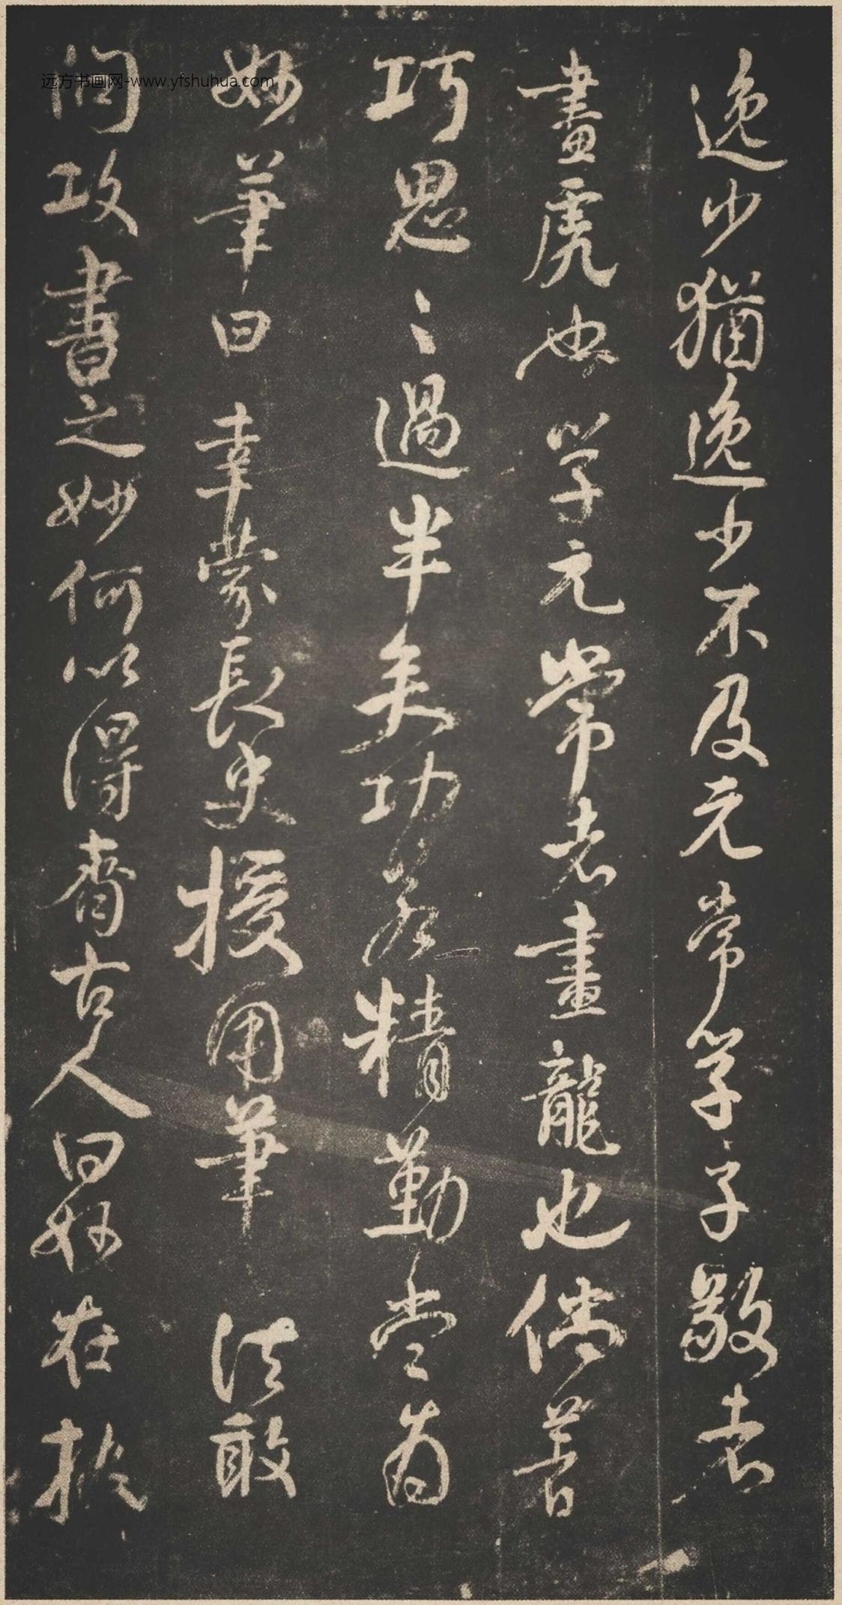 逸少猶逸少不及元常学子敬者
畫虎也学元常者畫龍也倘著
巧思思過半矣功若精勤當為
妙筆曰幸蒙長史授用筆法敢
問攻書之妙何以得齊古人曰妙在執
远方书画网-www.yfshuhua.com